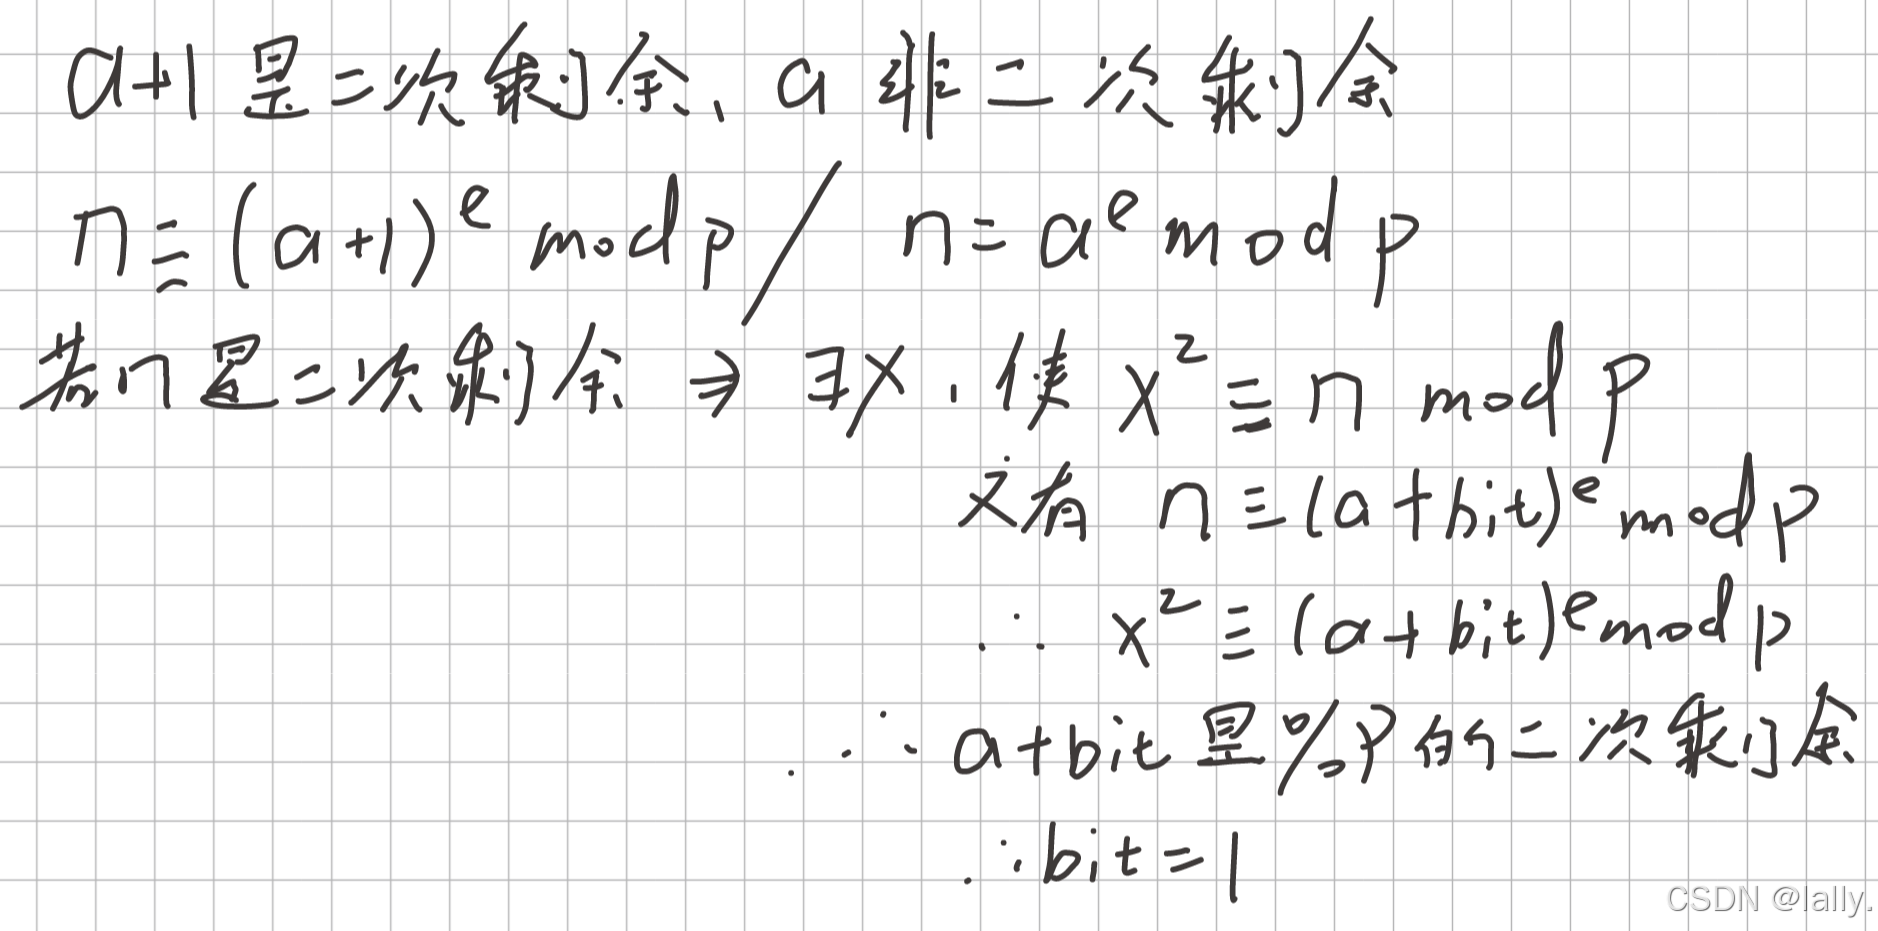 a+1 是二次剩余、a 非二次剩余
n≡(a+1)^e mod p / n=a^e mod p
若n是二次剩余 ⇒ ∃x，使 x² ≡ n mod p
又有 n≡(a+bit)^e mod p
∴ x² ≡ (a+bit)^e mod p
∴ a+bit 是%p的二次剩余
∴ bit=1
CSDN @lally.